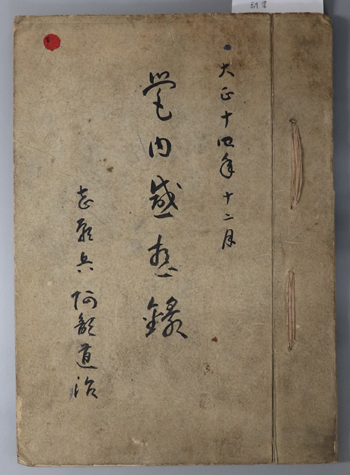 大正十四年十二月
営内感想録
志願兵 阿部道治